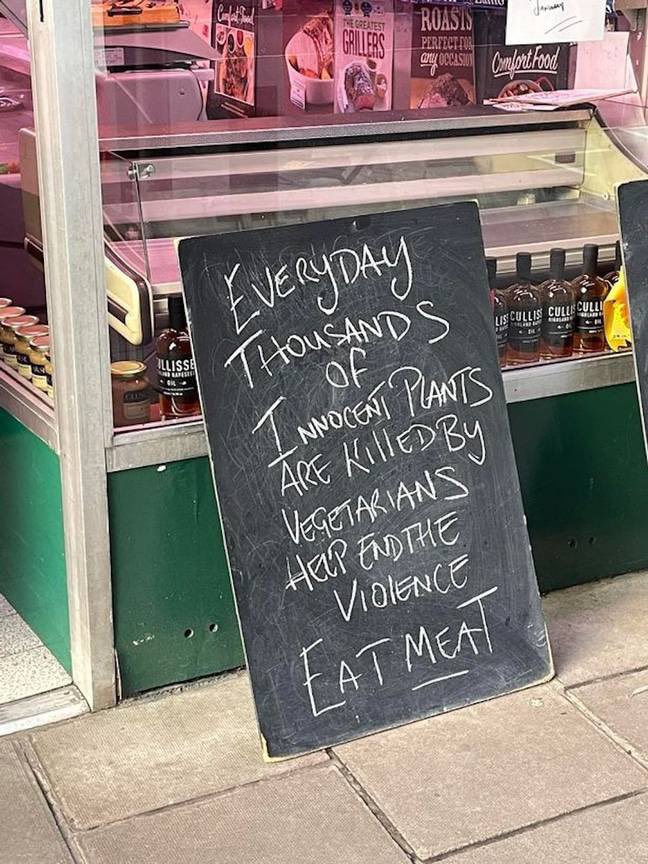 Comfort Food
THE GREATEST
GRILLERS
ROASTS
PERFECT FOR
any OCCASION
Comfort Food
EVERYDAY
THOUSANDS
OF
INNOCENT PLANTS
ARE KILLED BY
VEGETARIANS
HELP END THE
VIOLENCE
EAT MEAT
CULLISSE
HIGHLAND RAPESEED
OIL
CULLISSE
HIGHLAND
OIL
CULLI
OIL
CULL
OIL